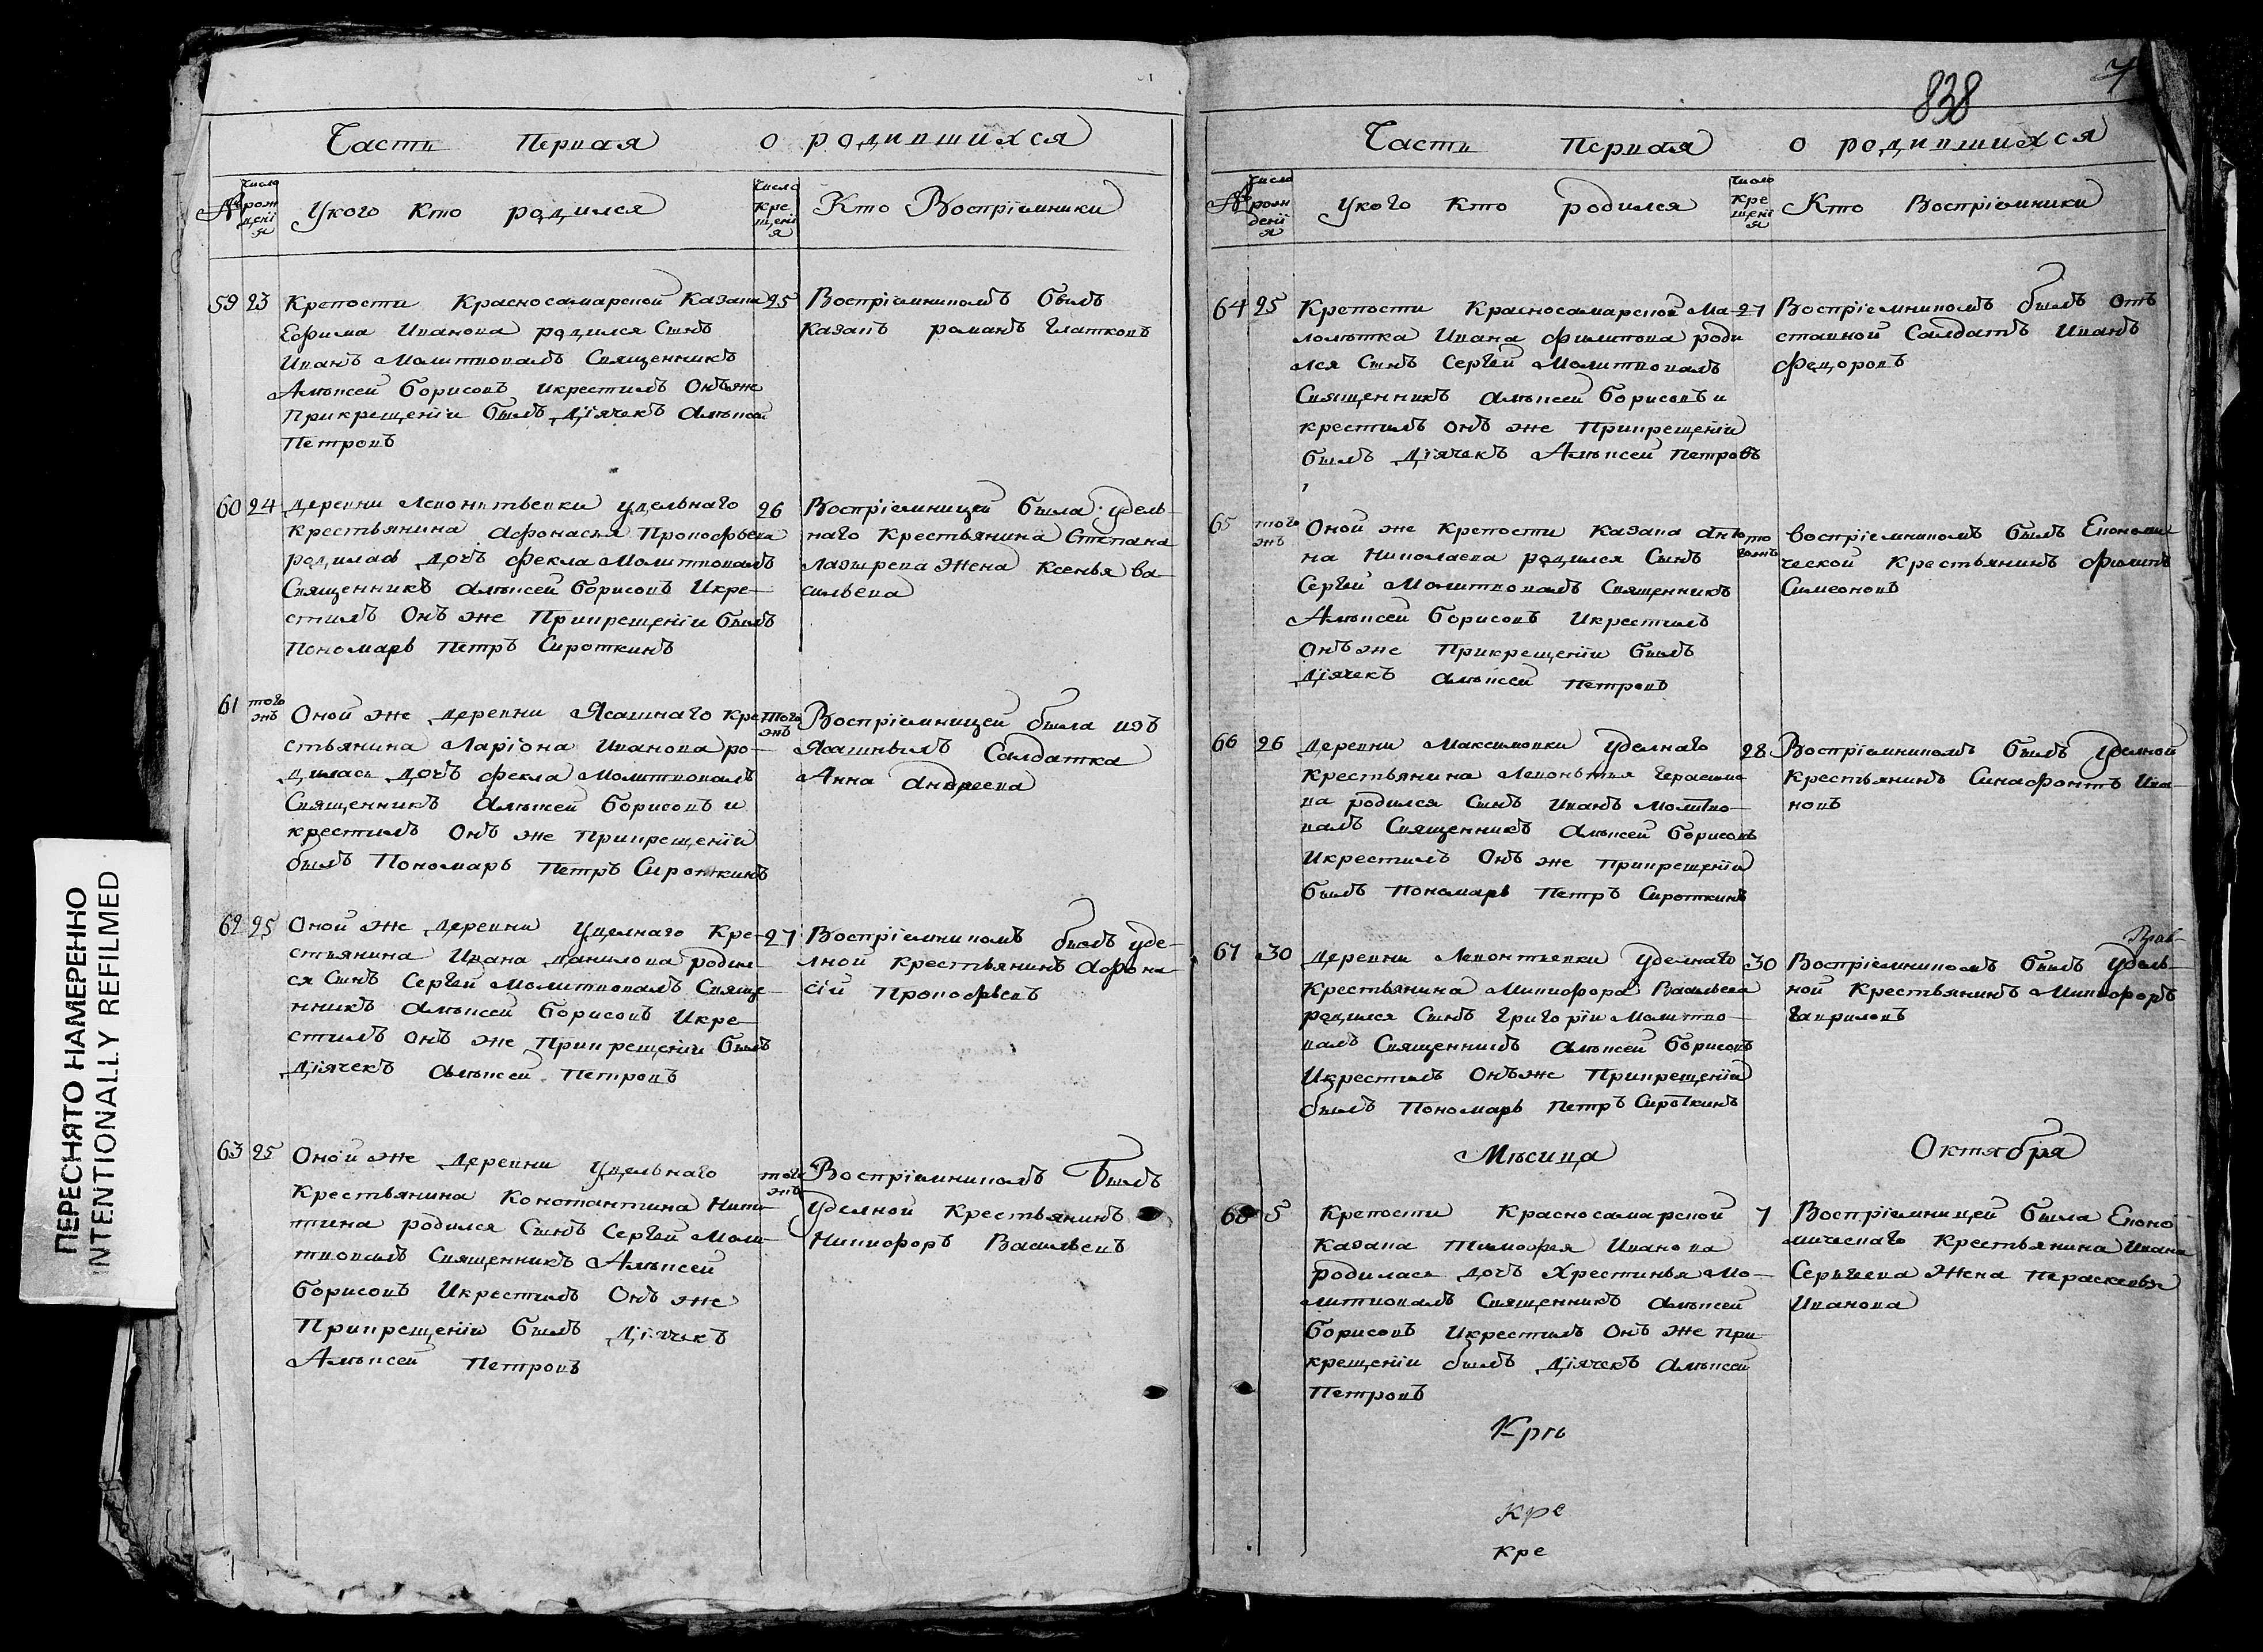 838
Часть Первая о родившихся
№ число рождения У кого Кто родился число крещения Кто Восприемники
59 23 Крепости Красносамарской Казака 25
Ефима Иванова родился Сынъ
Иванъ Молитвовалъ Священникъ
Алѣксей Борисовъ икрестилъ Онъже
Прикрещеніи былъ Дїячекъ Алѣксей
Петровъ
Воспріемникомъ былъ
казакъ романъ Глатковъ
60 24 деревни Леконтьевки удельнаго 26
крестьянина Афонасья Прокофьева
родилась дочь фекла Молитвовалъ
Священникъ Алѣксей Борисовъ Икре-
стилъ Онъ же Прикрещеніи былъ
Пономарь Петръ Сироткинъ
Воспріемницей была удель-
наго Крестьянина Степана
Лазырева Жена Ксенья ва-
сильева
61 того жъ Оной же деревни Ясашнаго кре- того жъ
стьянина Ларіона Иванова ро-
дилась дочь фекла Молитвовалъ
Священникъ Алѣксей Борисовъ и
крестилъ Онъ же Прикрещеніи
былъ Пономарь Петръ Сироткинъ
Воспріемницей была изъ
Ясашныхъ Салдатка
Анна Андреева
62 25 Оной же деревни Уделнаго Кре- 27
стьянина Ивана данилова родил-
ся Сынъ Сергей Молитвовалъ Свяще-
нникъ Алѣксей Борисовъ Икре-
стилъ Онъ же Прикрещеніи былъ
Дїячекъ Алѣксей Петровъ
Воспріемникомъ былъ уде-
лной крестьянинъ Афона-
сій Прокофьевъ
63 25 Оной же деревни Удельнаго того жъ
Крестьянина Константина Ники-
тина родился Сынъ Сергей Моли-
твовалъ Священникъ Алѣксей
Борисовъ Икрестилъ Онъ же
Прикрещеніи былъ Дїячекъ
Алѣксей Петровъ
Воспріемникомъ былъ
Уделной Крестьянинъ
Никифоръ Васильевъ
Часть Первая о родившихся
№ число рожденїя У кого Кто родился число крещенїя Кто Воспріемники
64 25 Крепости Красносамарской Ма- 27
лолѣтка Ивана филипова роди
лся Сынъ Сергей Молитвовалъ
Священникъ Алѣксей Борисовъ и
крестилъ онъ же Прикрещеніи
былъ Дїячекъ Алѣксей Петровъ
Воспріемникомъ былъ отъ
ставной Салдатъ Иванъ
Федоровъ
65 того жъ Оной же крепости казака Анто- того жъ
на Николаева родился Сынъ
Сергей Молитвовалъ Священникъ
Алѣксей Борисовъ Икрестилъ
Онъ же Прикрещеніи былъ
Дїячекъ Алѣксей Петровъ
воспріемникомъ былъ Економи
ческой Крестьянинъ филипъ
Симеоновъ
66 26 Деревни Максимовки Уделнаго 28
Крестьянина Леконьтья Герасимо
ва родился Сынъ Иванъ Молитво-
валъ Священникъ Алѣксей Борисовъ
Икрестилъ Онъ же прикрещеніи
былъ Пономарь Петръ Сироткинъ
Воспріемникомъ былъ Уделной
Крестьянинъ Синафонтъ Ива-
новъ
67 30 Деревни Леконтьевки Уделнаго 30
Крестьянина Никифора Васильева
родился Сынъ Григорїи Молитво-
валъ Священникъ Алѣксей Борисовъ
Икрестилъ Онъже Прикрещеніи
былъ Пономарь Петръ Сироткинъ
Воспріемникомъ былъ Удель-
ной Крестьянинъ Никифоръ
Гавриловъ
Мѣсяца Октября
68 5 Крепости Красносамарской 7
Казака Тимофея Иванова
родилась дочь Хрестинья Мо-
литвовалъ Священникъ Алѣксей
Борисовъ Икрестилъ Онъ же при
крещеніи былъ Дїячекъ Алѣксей
Петровъ
Воспріемницей была Еконо
мическаго Крестьянина Ивана
Сергѣева Жена Параскевья
Иванова
Кре
кре
ПЕРЕСНЯТО НАМЕРЕННО
INTENTIONALLY REFILMED